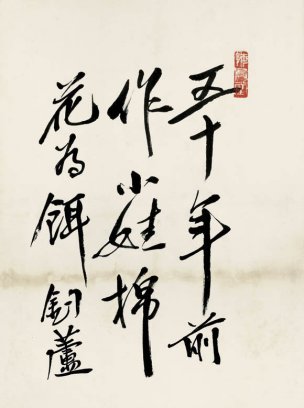 五十年前
作小娃棉
花為餌釣蘆